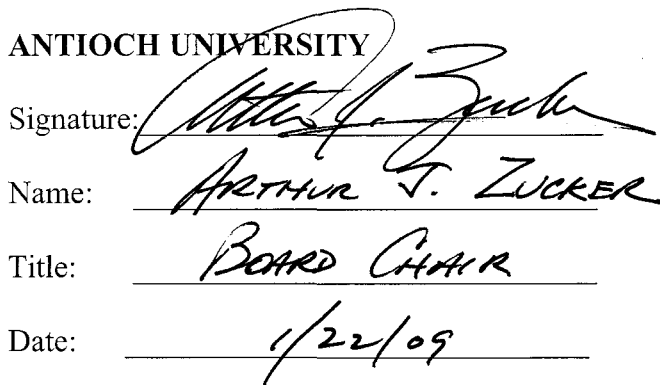 ANTIOCH UNIVERSITY
Signature: Arthur J. Zucker
Name: ARTHUR J. ZUCKER
Title: BOARD CHAIR
Date: 1/22/09